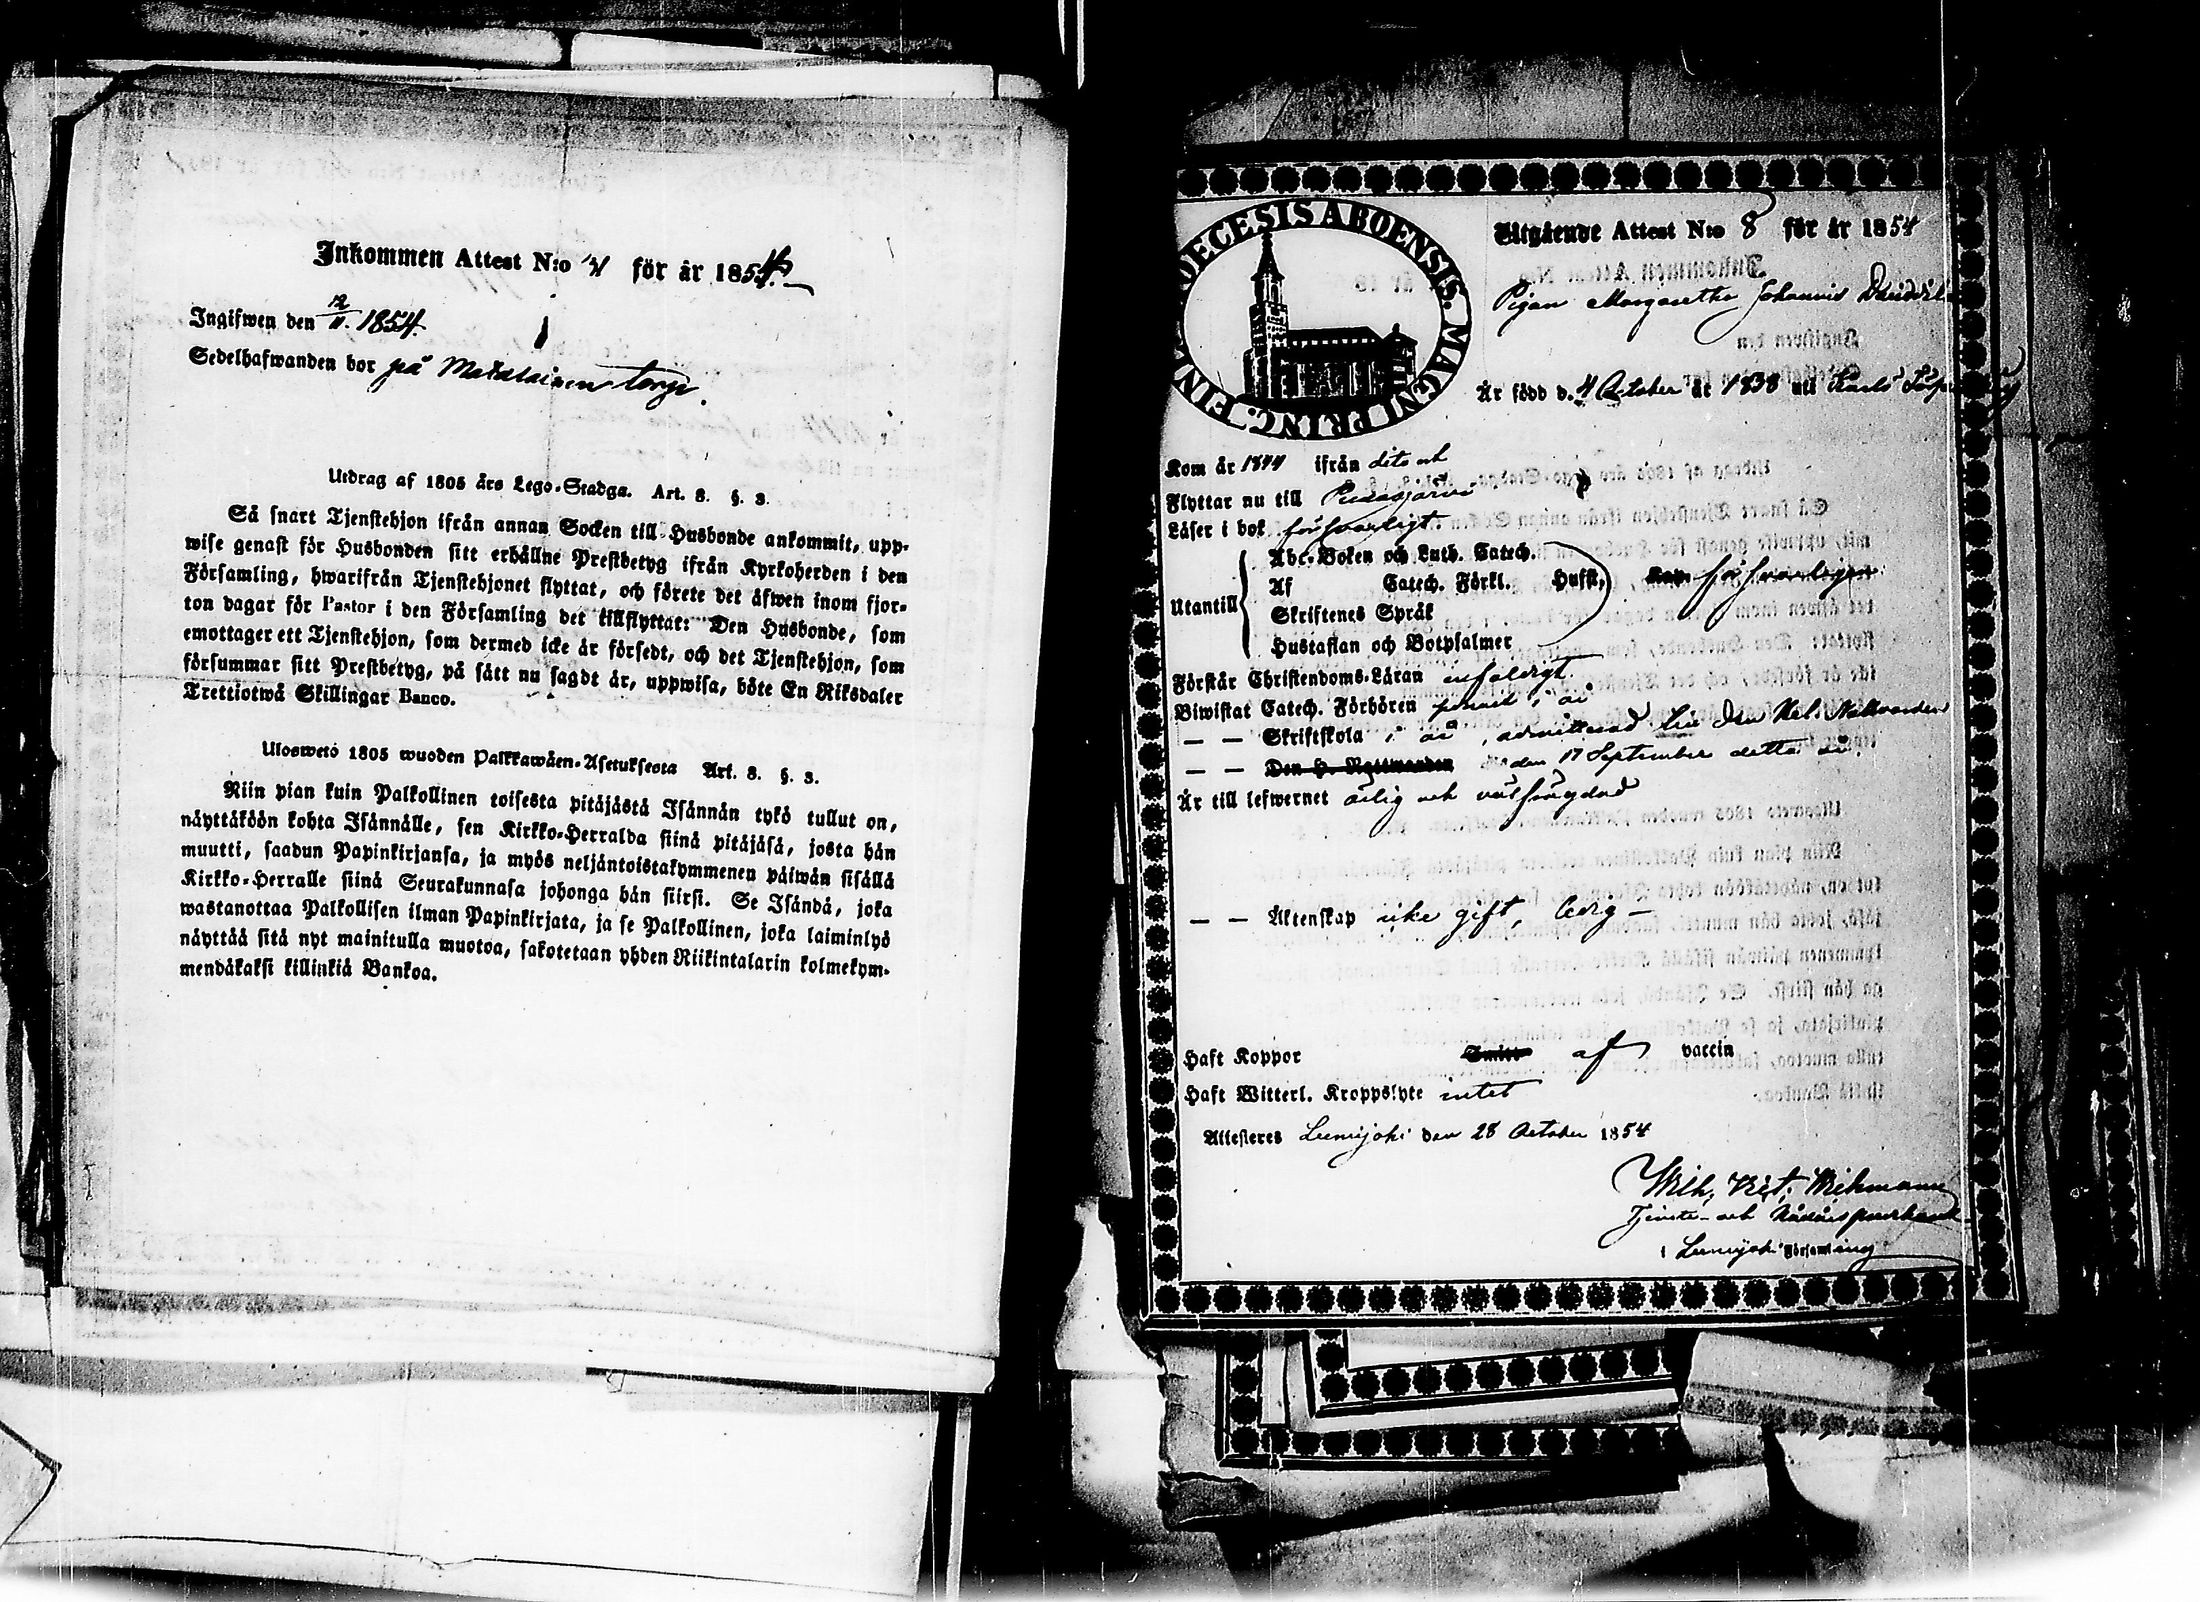 Inkommen Attest N:o 4 för år 1854.
Ingifwen den 12/11. 1854.
Sedelhafwanden bor på torp.
Utdrag af 1805 års Lego-Stadga. Art. 3. §. 3.
Så snart Tjenstehjon ifrån annan Socken till Husbonde ankommit, upp-
wise genast för Husbonden sitt erhållne Prestbetyg ifrån Kyrkoherden i den
Församling, hwarifrån Tjenstehjonet flyttat, och förete det äfwen inom fjor-
ton dagar för Pastor i den Församling det tillflyttat: Den Husbonde, som
emottager ett Tjenstehjon, som dermed icke är försedt, och det Tjenstehjon, som
försummar sitt Prestbetyg, på sätt nu sagdt är, uppwisa, böte En Riksdaler
Trettiotwå Skillingar Banco.
Uloswetö 1805 wuoden Palkkawäen-Asetuksesta Art. 3. §. 3.
Niin pian kuin Palkollinen toisesta pitäjästä Isännän tykö tullut on,
näyttäköön kohta Isännälle, sen Kirkko-Herralda siinä pitäjäsä, josta hän
muutti, saadun Papinkirjansa, ja myös neljäntoistakymmenen päiwän sisällä
Kirkko-Herralle siinä Seurakunnasa johonga hän siirsi. Se Isändä, joka
wastanottaa Palkollisen ilman Papinkirjata, ja se Palkollinen, joka laiminlyö
näyttää sitä nyt mainitulla muotoa, sakotetaan yhden Riikintalarin kolmekym-
mendäkaksi killinkiä Bankoa.
DIOECESIS ABOENSIS. MAGNI PRINC. FINL.
Utgående Attest N:o 8 för år 1854
Pigan Margaretha Johannis Dr
Är född d. 4 October år 1838 uti
Kom år 1844 ifrån dito och
Flyttar nu till Pudasjärvi
Läser i bok försvarligt
Utantill
Abc-Boken och Luth. Catech.
Af Catech. Förkl. Hufst. försvarligen
Skriftenes Språk
Hustaflan och Botpsalmer
Förstår Christendoms-Läran enfaldigt.
Biwistat Catech. Förhören i år
— — Skriftskola i år, admitterad till den Hel. Nattvarden
— — Den H. Nattwarden den 17 September detta år.
Är till lefwernet ärlig och välfrägdad
— — Äktenskap icke gift, ledig —
Haft Koppor Smitt af vaccin
Haft Witterl. Kroppslyte intet
Attesteras Lumijoki den 28 October 1854
Wilh.
Tjenste- och Nådårspredikant
i Lumijoki Församling